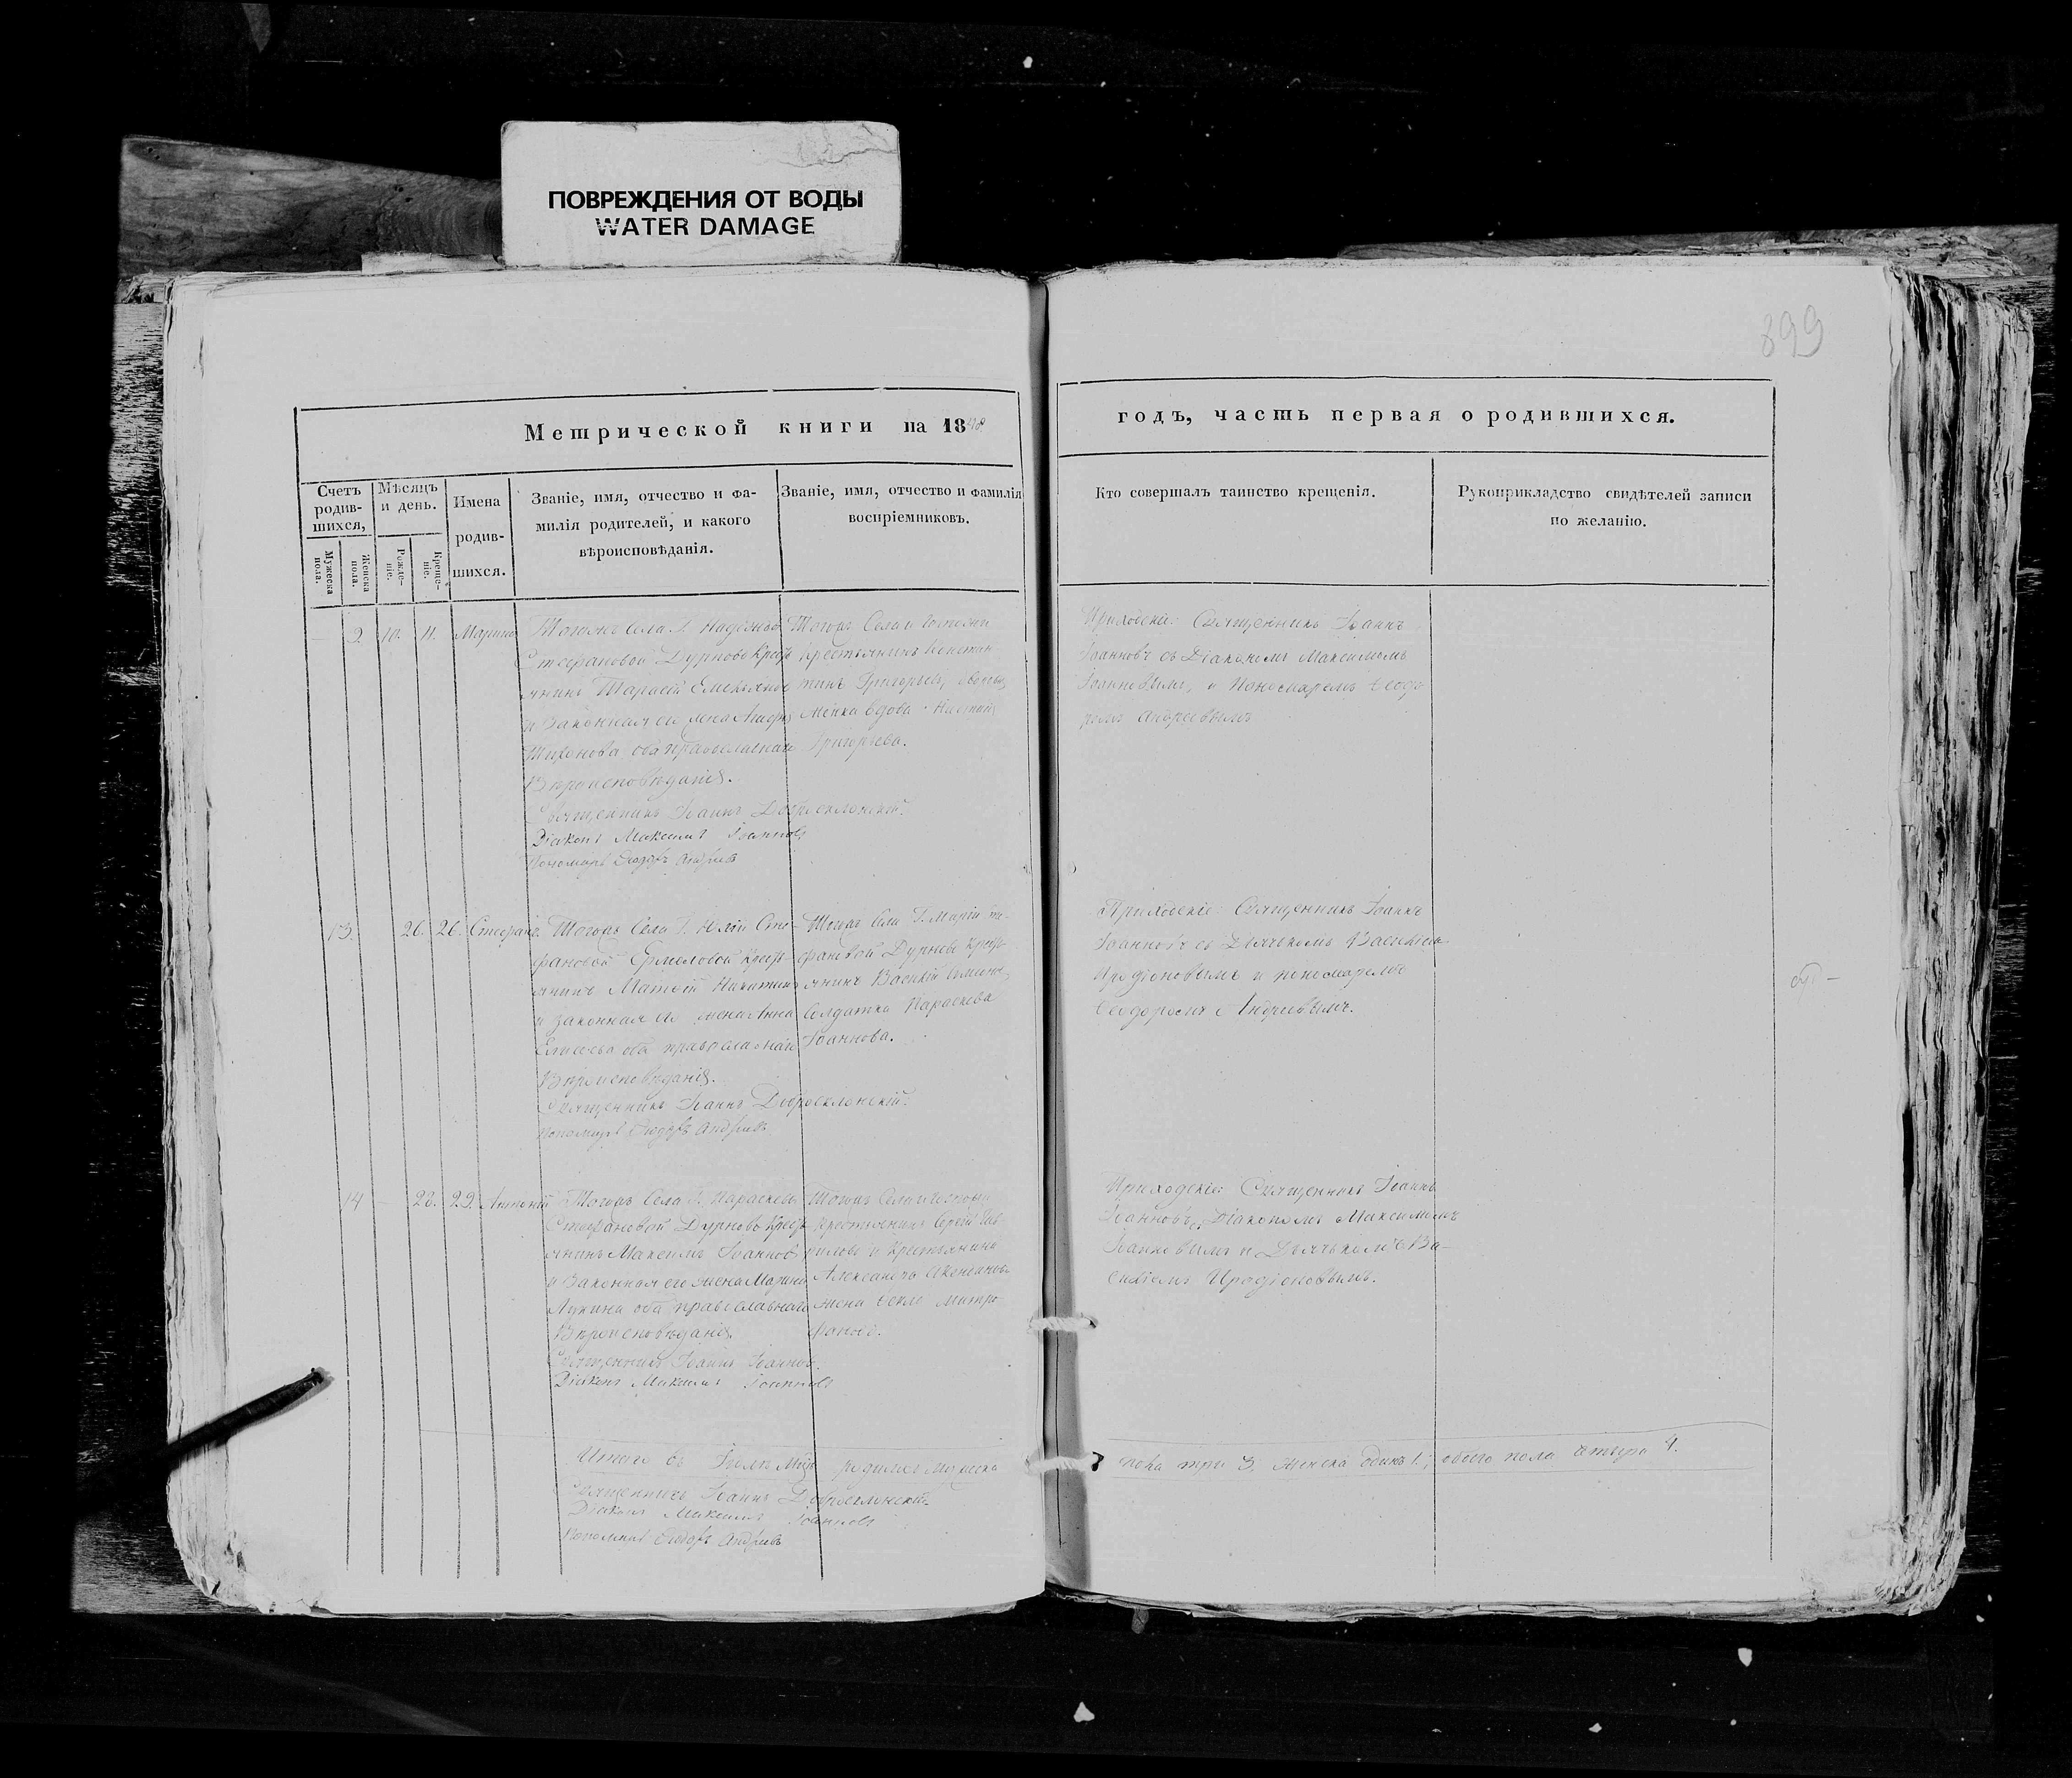 ПОВРЕЖДЕНИЯ ОТ ВОДЫ
WATER DAMAGE
899
Метрической книги на 1848
годъ, часть первая о родившихся.
Счетъ родив-шихся,
Мужеска пола.
Женска пола.
Мѣсяцъ и день.
Рожде-ніе.
Креще-ніе.
Имена
родив-
шихся.
Званіе, имя, отчество и фа-
милія родителей, и какого
вѣроисповѣданія.
Званіе, имя, отчество и фамилія
воспріемниковъ.
Кто совершалъ таинство крещенія.
Рукоприкладство свидѣтелей записи
по желанію.
9. 10. 11. Марина
Тогожъ села Г. Надежды
Стефановой Дурново Крестъ
янинъ Тарасій Емельянов
и Законная его жена
Тихонова оба православнаго
Вѣроисповѣданія.
Священникъ Іоаннъ Доброклонскій.
Діаконъ Максимъ Іоанновъ
Пономарь Ѳеодоръ Андреевъ
Тогожъ Села и Госпожи
Крестьянинъ Констан
тинъ Григорьевъ,
женка вдова
Григорьева.
Приходскіе: Священникъ Іоаннъ
Іоанновъ съ Діакономъ Максимомъ
Іоанновымъ, и Пономаремъ Ѳеодо
ромъ Андреевымъ
13. 26. 26. Стефанъ.
Тогожъ Села Г. Юліи Сте-
фановой Ермоловой Крестъ
янинъ Матѳій Никитинъ
и законная его жена Анна
Елисеева оба православнаго
Вѣроисповѣданія.
Священникъ Іоаннъ Доброклонскій.
Пономарь Ѳеодоръ Андреевъ
Тогожъ Села Г. Маріи Сте-
фановой Дурново Крестъ
янинъ Василій
Солдатка Параскева
Іоаннова.
Приходскіе: Священникъ Іоаннъ
Іоанновъ съ Дьячкомъ Василіемъ
Иродіоновымъ и пономаремъ
Ѳеодоромъ Андреевымъ.
14 28. 29. Антоній
Тогожъ Села Г. Параскевы
Стефановой Дурново Крестъ
янинъ Максимъ Іоанновъ
и Законная его жена Марина
Лукина оба православнаго
Вѣроисповѣданія
Священникъ Іоаннъ Іоанновъ.
Діаконъ Максимъ Іоанновъ
Тогожъ Села и Госпожи
Крестьянинъ Сергій Гав
риловъ и Крестьянина
Александра
жена Ѳекла Митро
фанова.
Приходскіе Священникъ Іоаннъ
Іоанновъ съ Діакономъ Максимомъ
Іоанновымъ и Дьячкомъ Ва-
силіемъ Иродіоновымъ.
Итого въ Іюлѣ Мцѣ родилось мужеска
пола три 3. женска одинъ 1. обоего пола четыре 4.
Священникъ Іоаннъ Доброклонскій.
Діаконъ Максимъ Іоанновъ
Пономарь Ѳеодоръ Андреевъ